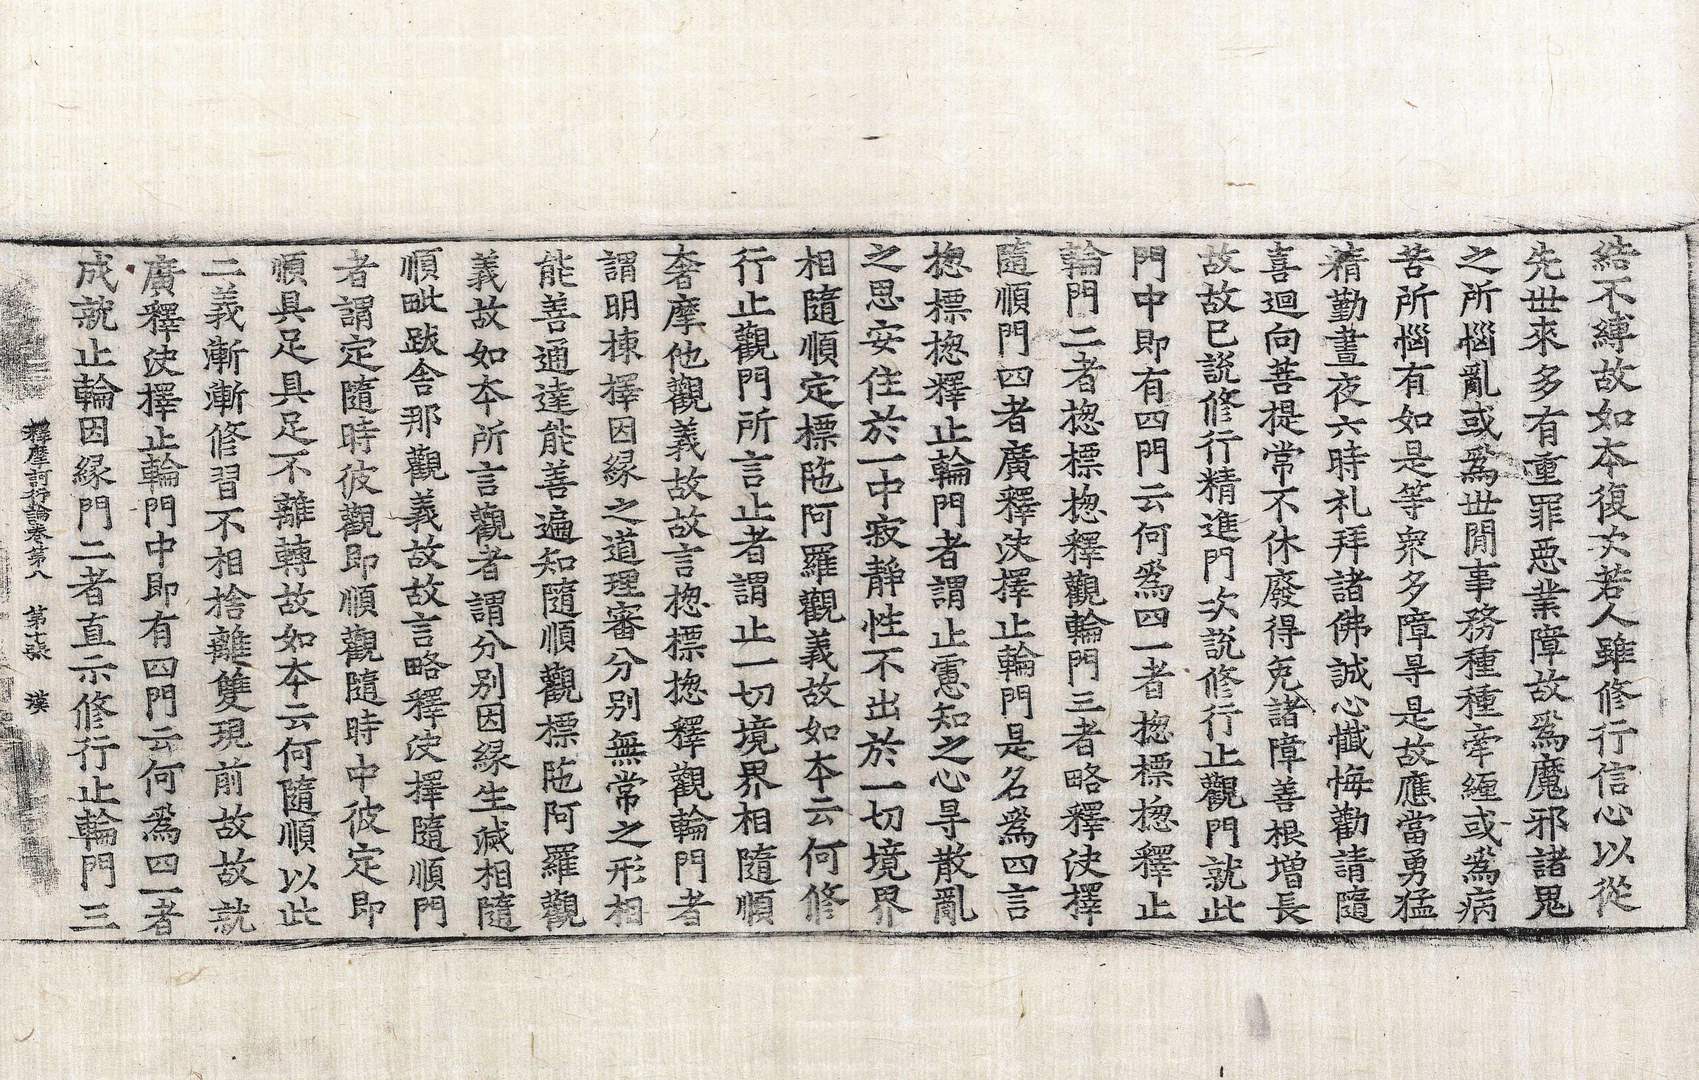 結不縛故如本復次若人雖修行信心以從
先世來多有重罪惡業障故爲魔邪諸鬼
之所惱亂或爲世閒事務種種牽纏或爲病
苦所惱有如是等衆多障㝵是故應當勇猛
精勤晝夜六時礼拜諸佛誠心懺悔勸請隨
喜迴向菩提常不休廢得免諸障善根增長
故故已說修行精進門次說修行止觀門就此
門中即有四門云何爲四一者摠標摠釋止
輪門二者摠標摠釋觀輪門三者略釋決擇
隨順門四者廣釋決擇止輪門是名爲四言
摠標摠釋止輪門者謂止慮知之心㝵散亂
之思安住於一中寂靜性不出於一切境界
相隨順定標陁阿羅觀義故如本云何修
行止觀門所言止者謂止一切境界相隨順
奢摩他觀義故故言摠標摠釋觀輪門者
謂明棟擇因緣之道理審分別無常之形相
能善通達能善遍知隨順觀標陁阿羅觀
義故如本所言觀者謂分別因緣生滅相隨
順毗跋舍那觀義故故言略釋決擇隨順門
者謂定隨時彼觀即順觀隨時中彼定即
順具足具足不離轉故如本云何隨順以此
二義漸漸修習不相捨離雙現前故故就
廣釋決擇止輪門中即有四門云何爲四一者
成就止輪因緣門二者直示修行止輪門三
釋摩訶衍論卷第八　第十張　漢